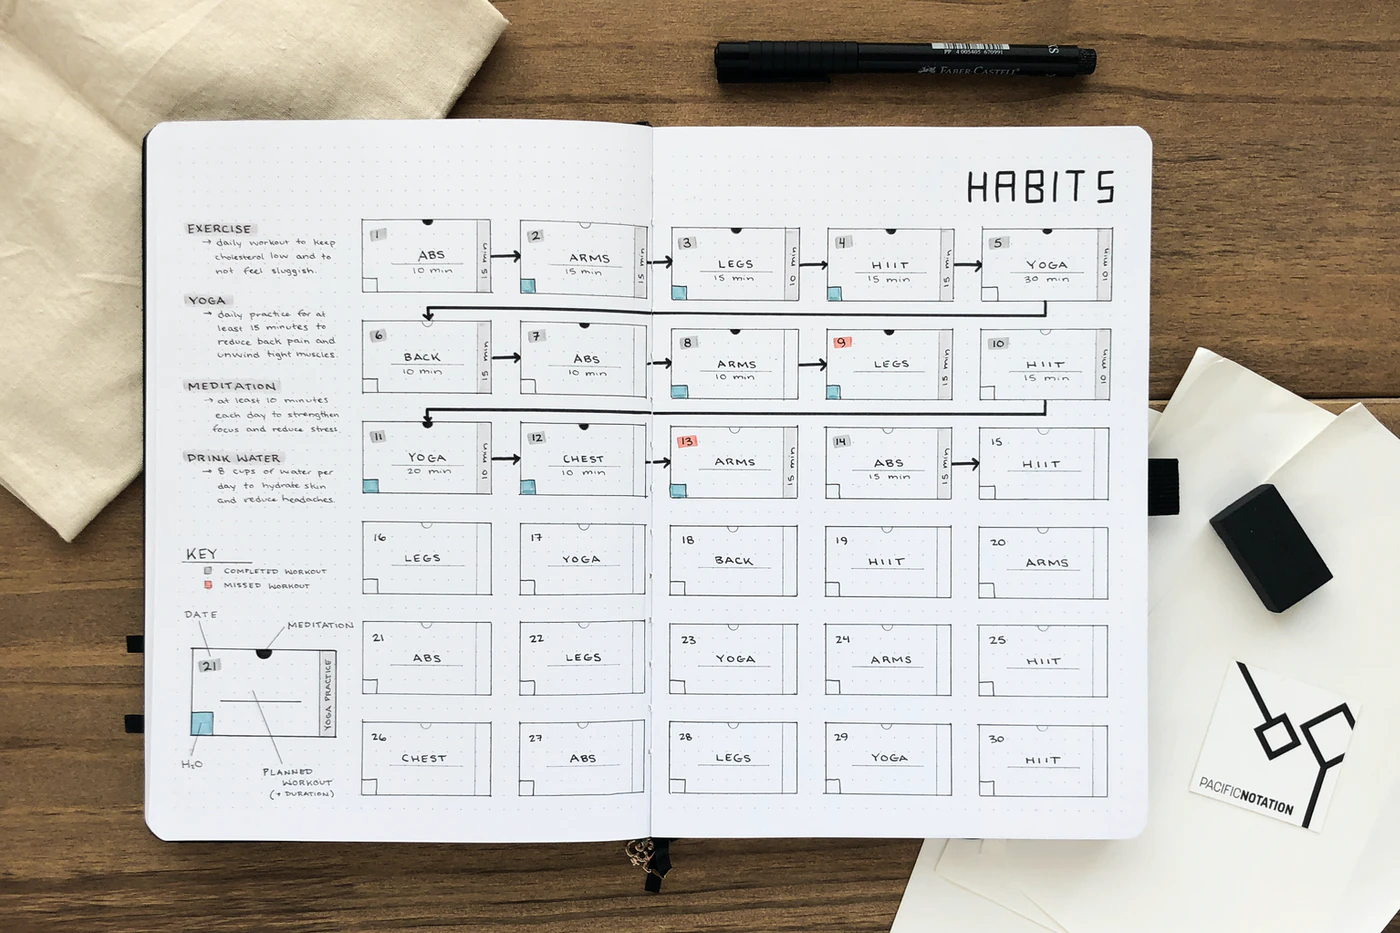 PP 4 005405 670991
FABER-CASTELL
XS
HABITS
EXERCISE
→ daily workout to keep
cholesterol low and to
not feel sluggish.
YOGA
→ daily practice for at
least 15 minutes to
reduce back pain and
unwind tight muscles.
MEDITATION
→ at least 10 minutes
each day to strengthen
focus and reduce stress.
DRINK WATER
→ 8 cups of water per
day to hydrate skin
and reduce headaches.
KEY
COMPLETED WORKOUT
MISSED WORKOUT
DATE
MEDITATION
21
YOGA PRACTICE
H₂O
PLANNED
WORKOUT
(+ DURATION)
1
ABS
10 min
15 min
2
ARMS
15 min
15 min
3
LEGS
15 min
10 min
4
HIIT
15 min
15 min
5
YOGA
30 min
10 min
6
BACK
10 min
15 min
7
ABS
10 min
8
ARMS
10 min
9
LEGS
15 min
10
HIIT
15 min
10 min
11
YOGA
20 min
10 min
12
CHEST
10 min
13
ARMS
15 min
14
ABS
15 min
15 min
15
HIIT
16
LEGS
17
YOGA
18
BACK
19
HIIT
20
ARMS
21
ABS
22
LEGS
23
YOGA
24
ARMS
25
HIIT
26
CHEST
27
ABS
28
LEGS
29
YOGA
30
HIIT
PACIFICNOTATION